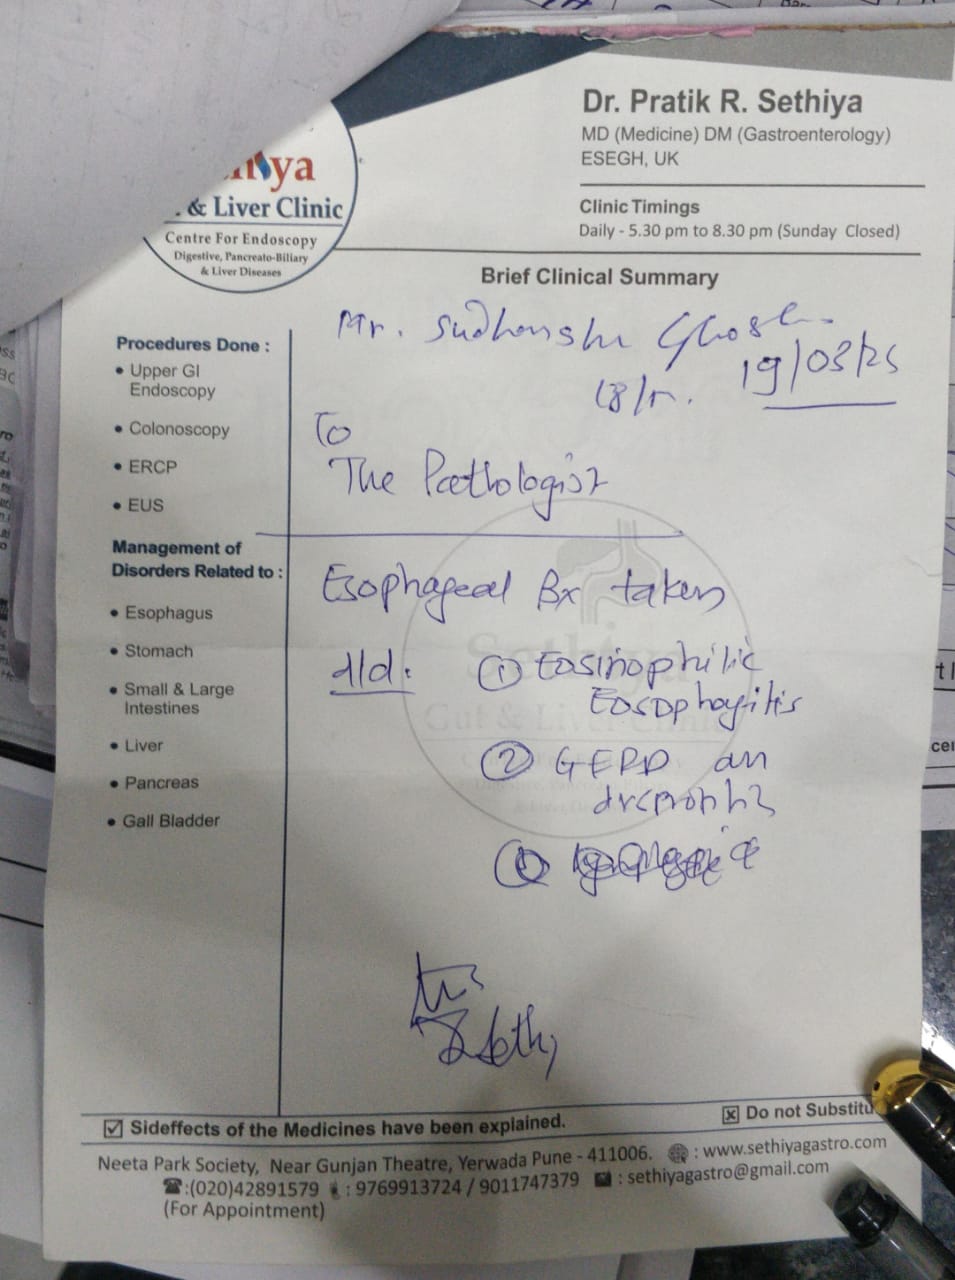 Dr. Pratik R. Sethiya
MD (Medicine) DM (Gastroenterology)
ESEGH, UK
Clinic Timings
Daily - 5.30 pm to 8.30 pm (Sunday Closed)
& Liver Clinic
Centre For Endoscopy
Digestive, Pancreato-Biliary
& Liver Diseases
Brief Clinical Summary
Mr. Sudhanshu Ghosh
19/03/25
To
The Pathologist
Esophageal Bx taken
d/d: ① Eosinophilic
Eosophagitis
② GERD
Procedures Done :
• Upper GI
Endoscopy
• Colonoscopy
• ERCP
• EUS
Management of
Disorders Related to :
• Esophagus
• Stomach
• Small & Large
Intestines
• Liver
• Pancreas
• Gall Bladder
Sethiya
Gut & Liver Clinic
☑ Sideffects of the Medicines have been explained.
☒ Do not Substitu
Neeta Park Society, Near Gunjan Theatre, Yerwada Pune - 411006. : www.sethiyagastro.com
☎:(020)42891579 : 9769913724 / 9011747379 : sethiyagastro@gmail.com
(For Appointment)